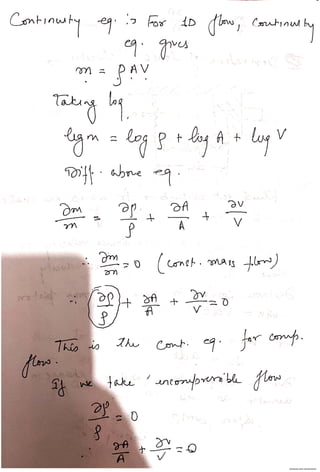 Continuity eq. :- For 1D flow, continuity
eq. gives
m = ρ A V
Taking log
log m = log ρ + log A + log V
Diff. above eq.
∂m/m = ∂ρ/ρ + ∂A/A + ∂v/V
∴ ∂m/m = 0 (const. mass flow)
∴ ∂ρ/ρ + ∂A/A + ∂v/V = 0
This is the cont. eq. for comp.
flow.
If we take incompressible flow
∂ρ/ρ = 0
∴ ∂A/A + ∂v/V = 0